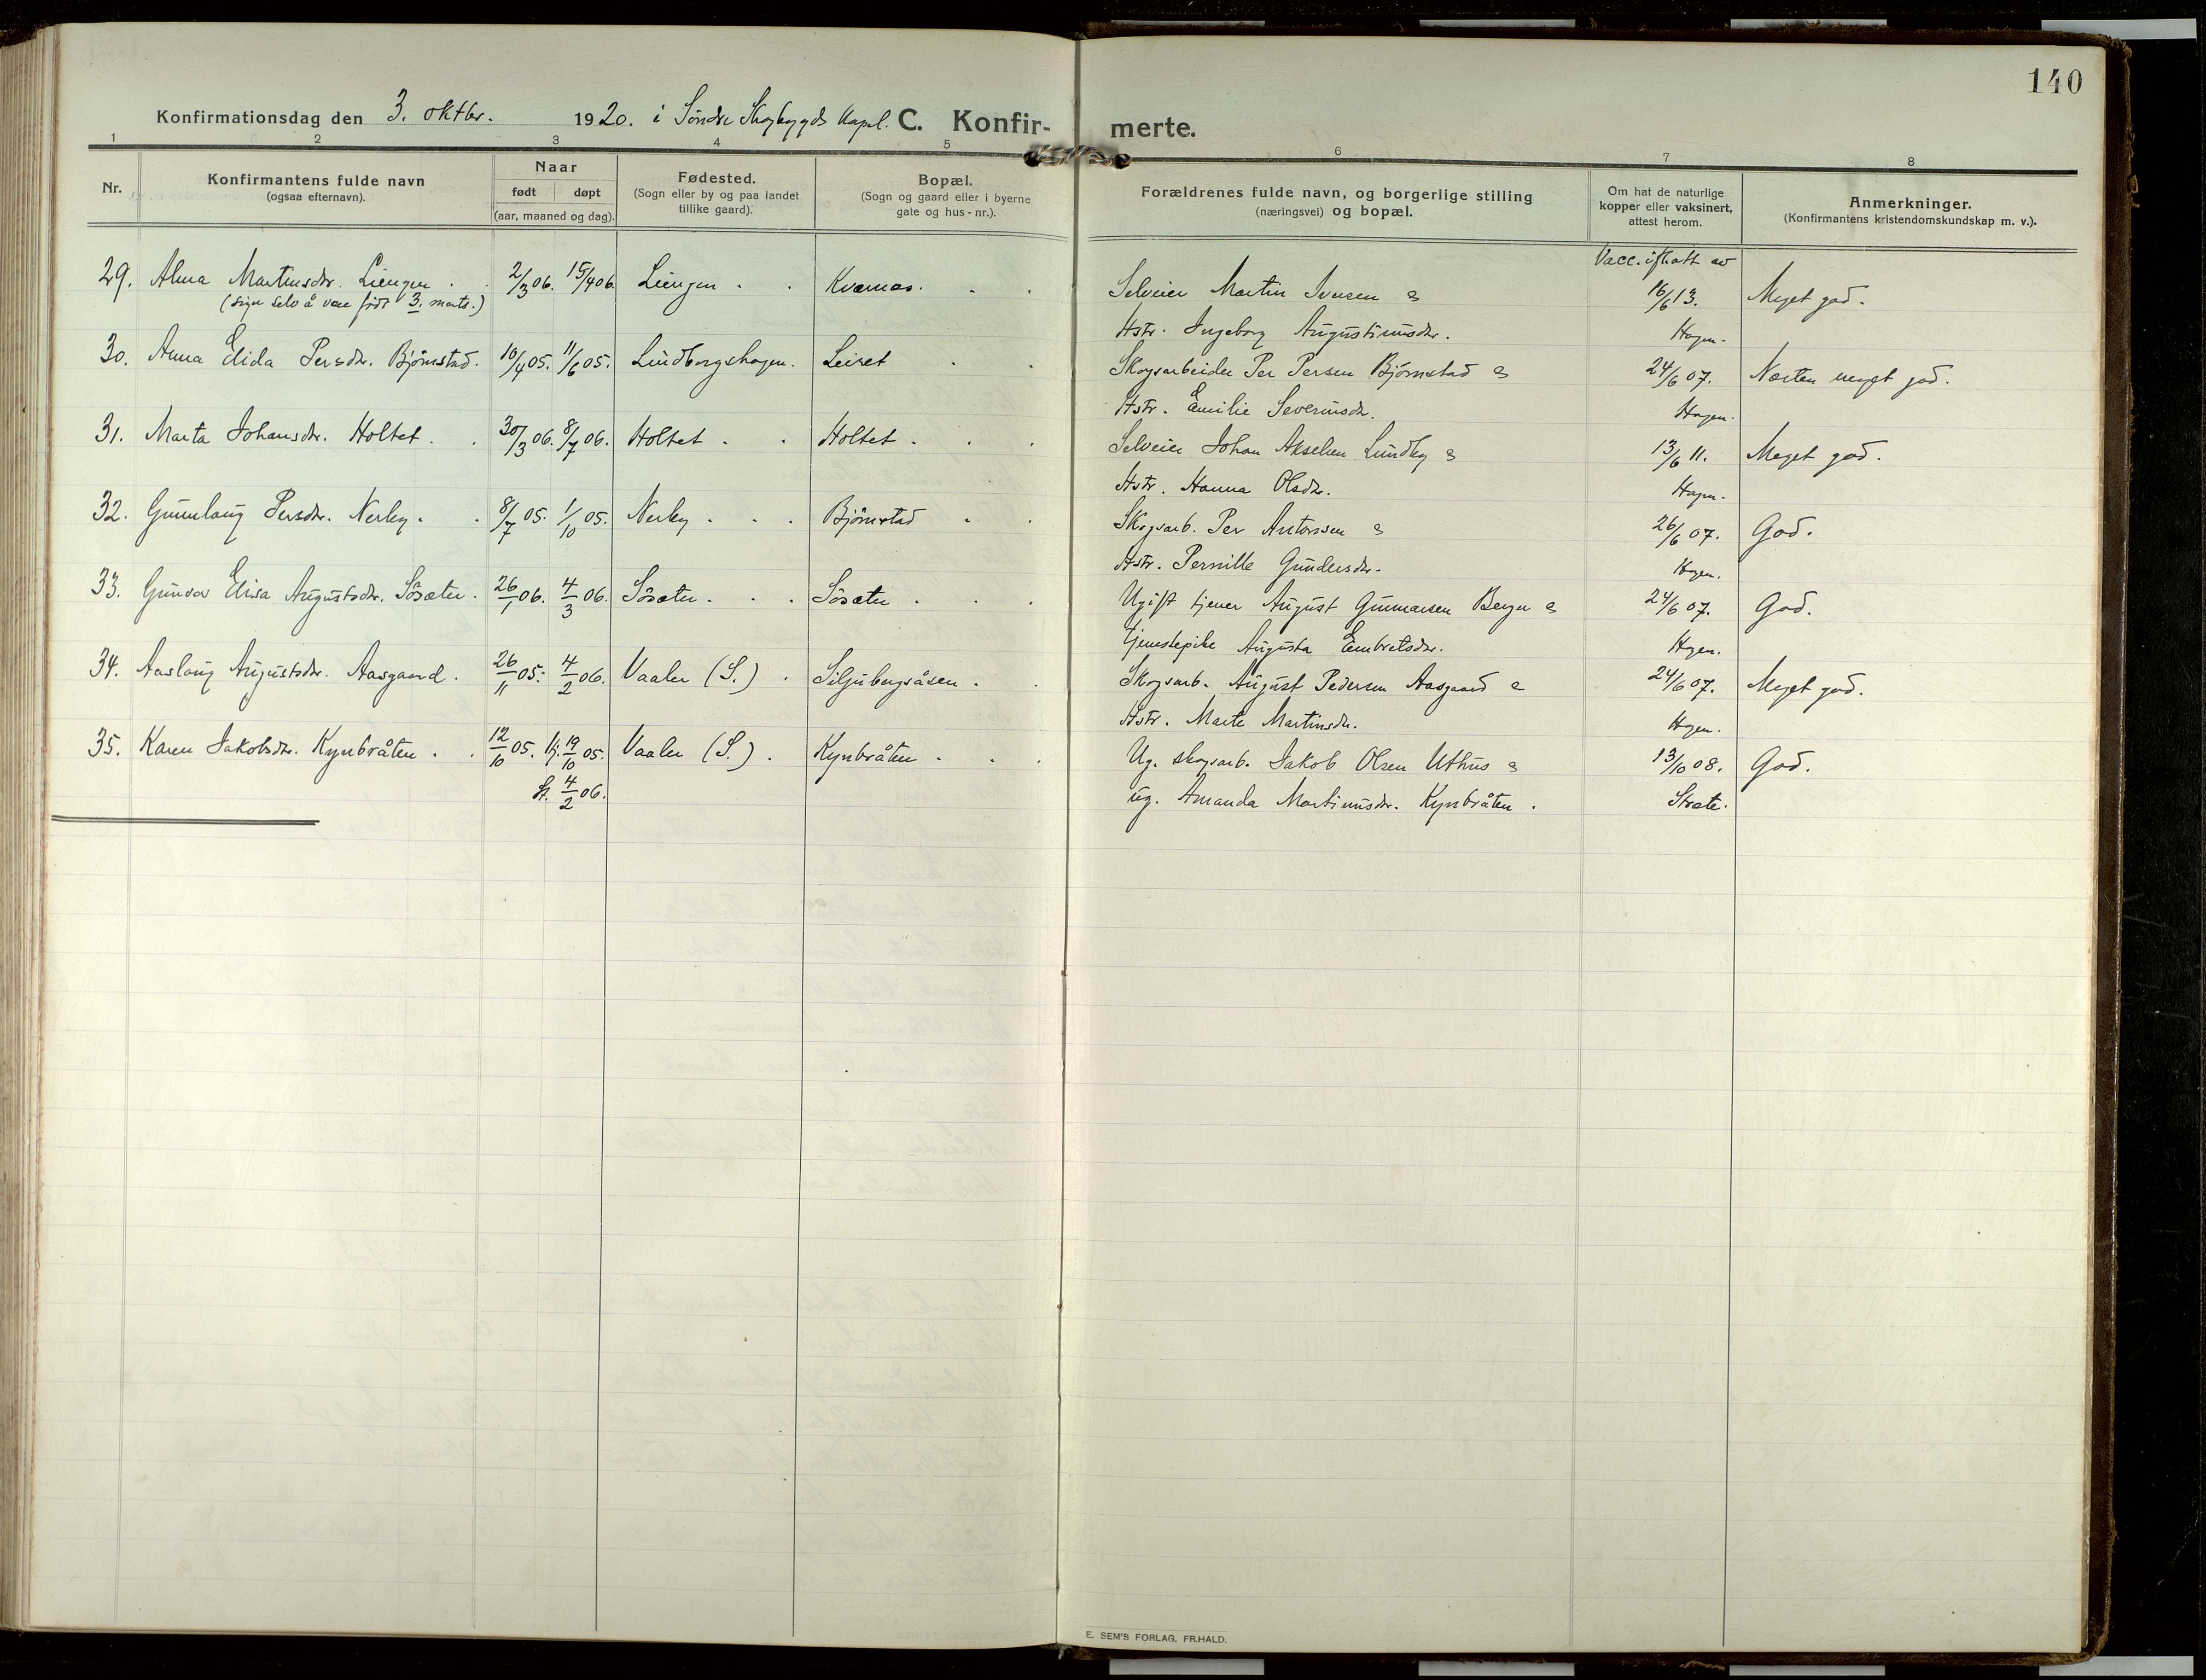 140
Konfirmationsdag den 3. oktbr. 1920. i Söndre Skogbygds Kapel. C. Konfir- merte.
1 2 3 4 5 6 7 8
Nr.
Konfirmantens fulde navn
(ogsaa efternavn).
Naar
født døpt
(aar, maaned og dag).
Fødested.
(Sogn eller by og paa landet
tillike gaard).
Bopæl.
(Sogn og gaard eller i byerne
gate og hus-nr.).
Forældrenes fulde navn, og borgerlige stilling
(næringsvei) og bopæl.
Om hat de naturlige
kopper eller vaksinert,
attest herom.
Anmerkninger.
(Konfirmantens kristendomskundskap m. v.).
Vacc. if. att av
29. Alma Martinsdtr. Liengen . 2/3 06. 15/4 06. Liengen . . Kvernas. . . Selveier Martin Iversen & 16/6 13. Meget god.
(Siger selv å være født 3. marts.) Hstr. Ingeborg Augustinusdtr. Hagen.
30. Anna Elida Persdtr. Björnstad. 10/4 05. 11/6 05. Lindbergshagen. Leiret . . Skogsarbeider Per Persen Björnstad & 24/6 07. Næsten meget god.
Hstr. Emilie Severinsdtr. Hagen.
31. Marta Johansdtr. Holtet . . 30/3 06. 8/7 06. Holtet . . Holtet . . . Selveier Johan Akselsen Lundby & 13/6 11. Meget god.
Hstr. Hanna Olsdtr. Hagen.
32. Gunnlaug Persdtr. Nerby . . 8/7 05. 1/10 05. Nerby . . . Björnstad . . Skogsarb. Per Antonsen & 26/6 07. God.
Hstr. Pernille Gundersdtr. Hagen.
33. Gunvor Elisa Augustsdtr. Sösæter. 26/1 06. 4/3 06. Sösæter . . . Sösæter . . . Ugift tjener August Gunnarsen Berger & 24/6 07. God.
tjenestepike Augusta Embretsdtr. Hagen.
34. Aaslaug Augustsdtr. Aasgaard . 26/11 05. 4/2 06. Vaaler (S.) . Siljubergsåsen . . Skogsarb. August Pedersen Aasgaard & 24/6 07. Meget god.
Hstr. Marte Martinsdtr. Hagen.
35. Karen Jakobsdtr. Kynbråten . . 12/10 05. Hj. 19/10 05. Vaaler (S.) . Kynbråten . . . Ug. skogsarb. Jakob Olsen Uthus & 13/10 08. God.
St. 4/2 06. ug. Amanda Martinusdtr. Kynbråten . Stræte.
E. SEM'S FORLAG, FR.HALD.